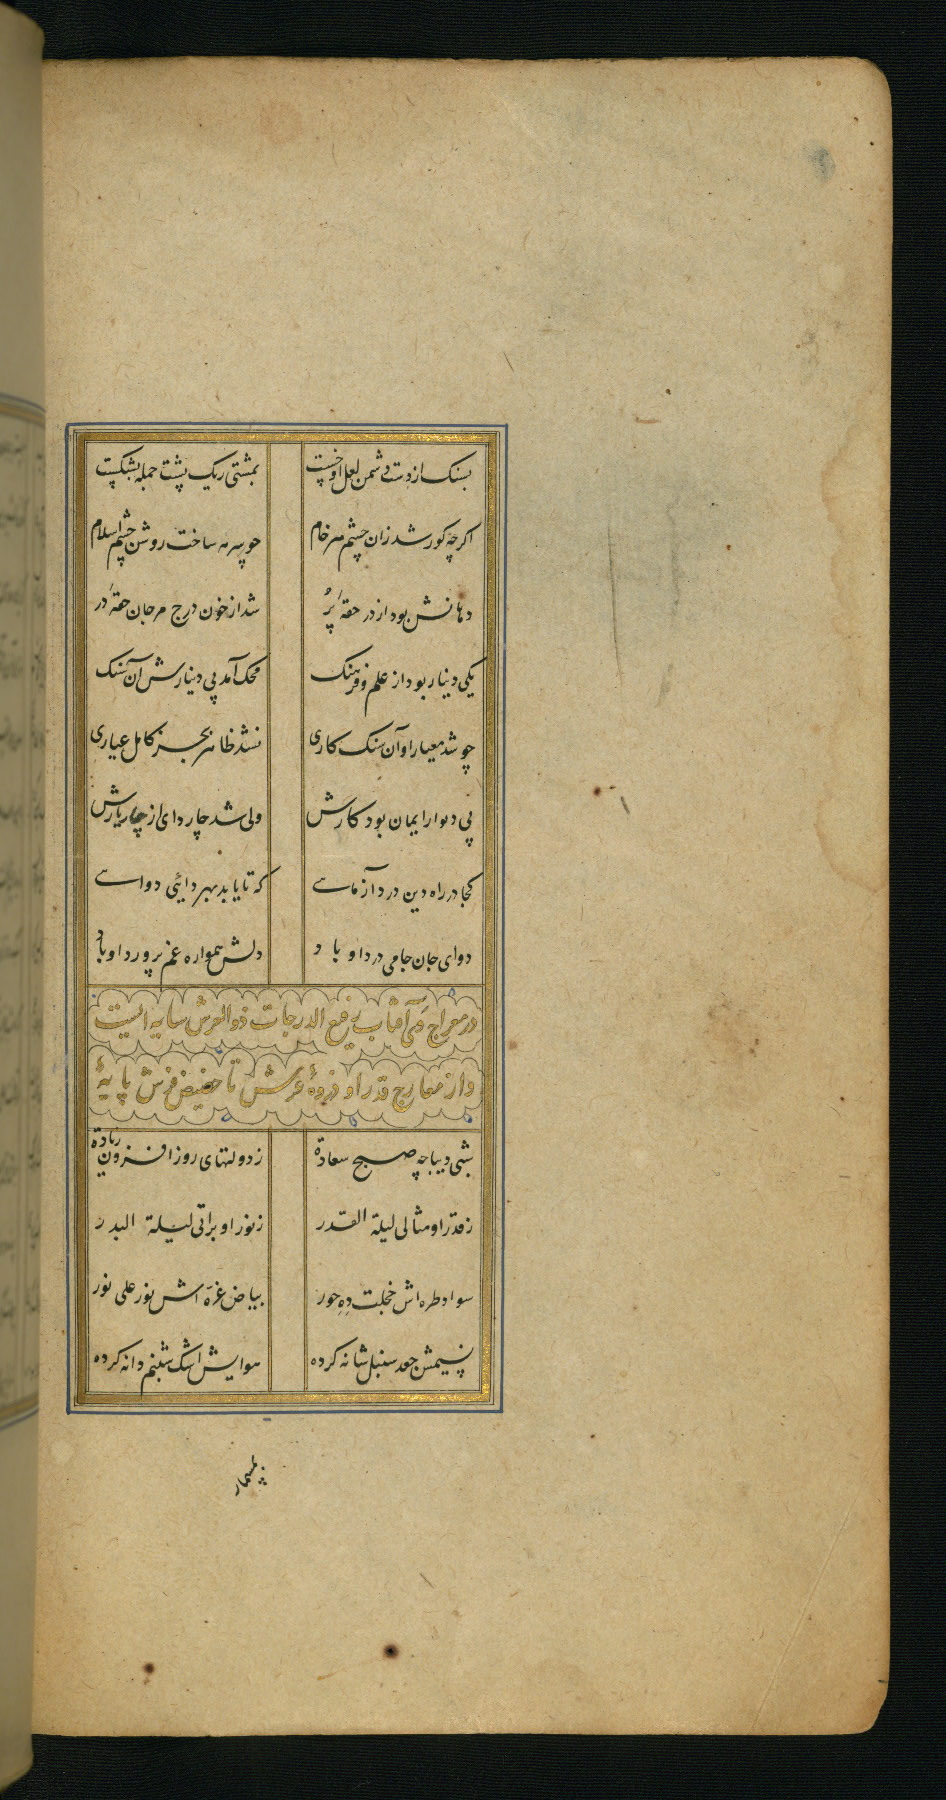 بسنک از دست دشمن لعل او خست بمشتی ریک پشت جمله بشکست
اکرچه کور شد زان چشم سرخام چو سرمه ساخت روشن چشم اسلام
دهانش بود از در حقهٔ پُر شد از خون درج مرجان حقهٔ در
یکی دینار بود از علم و فرهنک محک آمد پی دینارش آن سنک
چو شد معیار او آن سنک کاری نشد ظاهر بجز کامل عیاری
پی دیوار ایمان بود کارش ولی شد چار دای از چار یارش
کجا در راه دین درد آزمایے که تا یابد بهر دایٔی دوایے
دوای جان جامی درد او باد دلش همواره غم پرورد او باد
در معراج وی آفتاب رفیع الدرجات ذوالعرش سایه ایست
و از معارج قدر او ذروهٔ عرش تا حضیض فرش پایهٔ
شبی دیباچه صبح سعادة ز دولتهای روز افزون زیادة
ز قدر او مثالی لیلة القدر ز نور او براتی لیلة البدر
سواد طره اش خجلت دِهِ حور بیاض غرّه اش نور علی نور
نسیمش جعد سنبل شانه کرده هوایش اشک شبنم دانه کرده
بمسمار